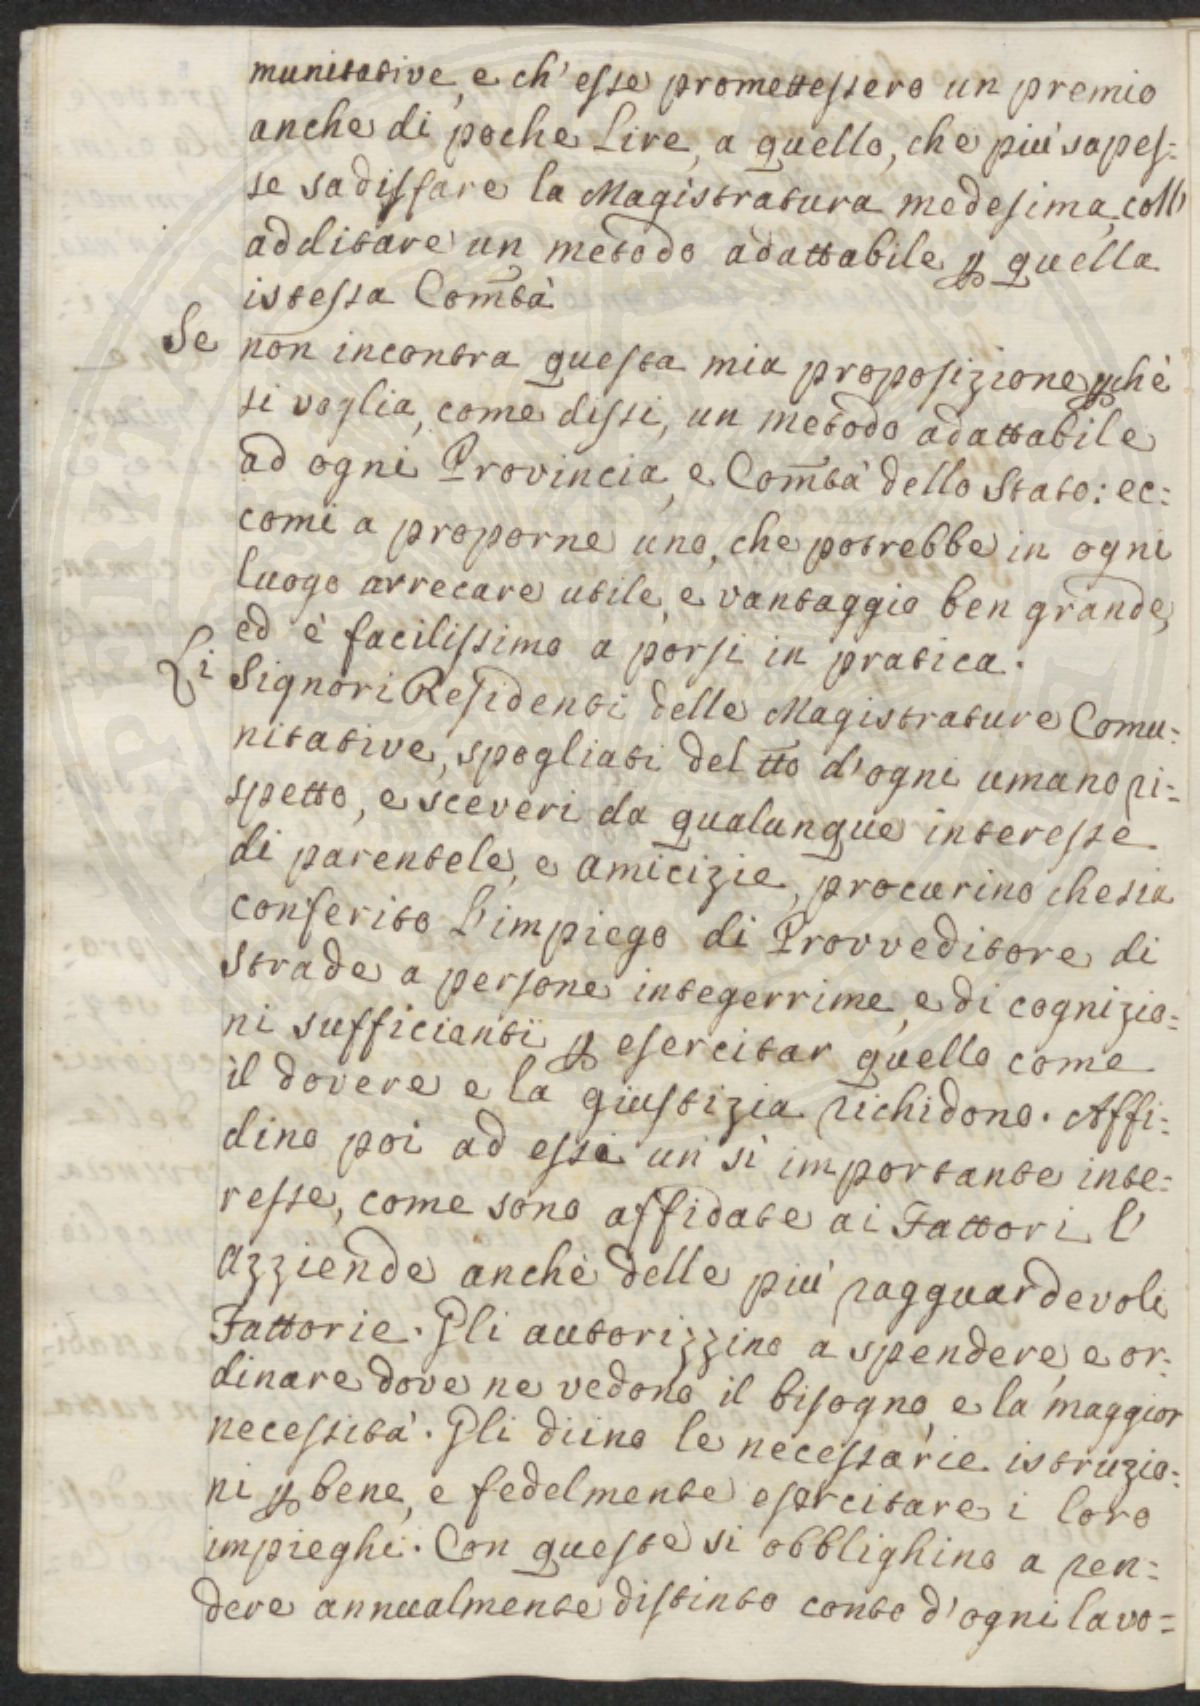 munitative, e ch'esse promettessero un premio
anche di poche Lire, a quello, che più sapes=
se sadisfare la Magistratura medesima, coll'
additare un metodo adattabile p quella
istessa Com̄tà
Se non incontra questa mia proposizione pchè
si voglia, come dissi, un metodo adattabile
ad ogni Provincia, e Com̄tà dello Stato: ec=
comi a proporne uno, che potrebbe in ogni
luogo arrecare utile, e vantaggio ben grande,
ed è facilissimo a porsi in pratica.
Li Signori Residenti delle Magistrature Comu=
nitative, spogliati del tt̄o d'ogni umano ri=
spetto, e sceveri da qualunque interesse
di parentele, e amicizie, procurino che sia
conferito l'impiego di Provveditore di
Strade a persone integerrime, e di cognizio=
ni sufficienti p esercitar quello come
il dovere e la giustizia richidono. Affi=
dino poi ad essi un sì importante inte=
resse, come sono affidate ai Fattori l'
azziende anche delle più ragguardevoli
Fattorie. Gli autorizzino a spendere, e or=
dinare dove ne vedono il bisogno, e la maggior
necessità. Gli diino le necessarie istruzio=
ni p bene, e fedelmente esercitare i loro
impieghi. Con queste si obblighino a ren=
dere annualmente distinto conto d'ogni lavo=